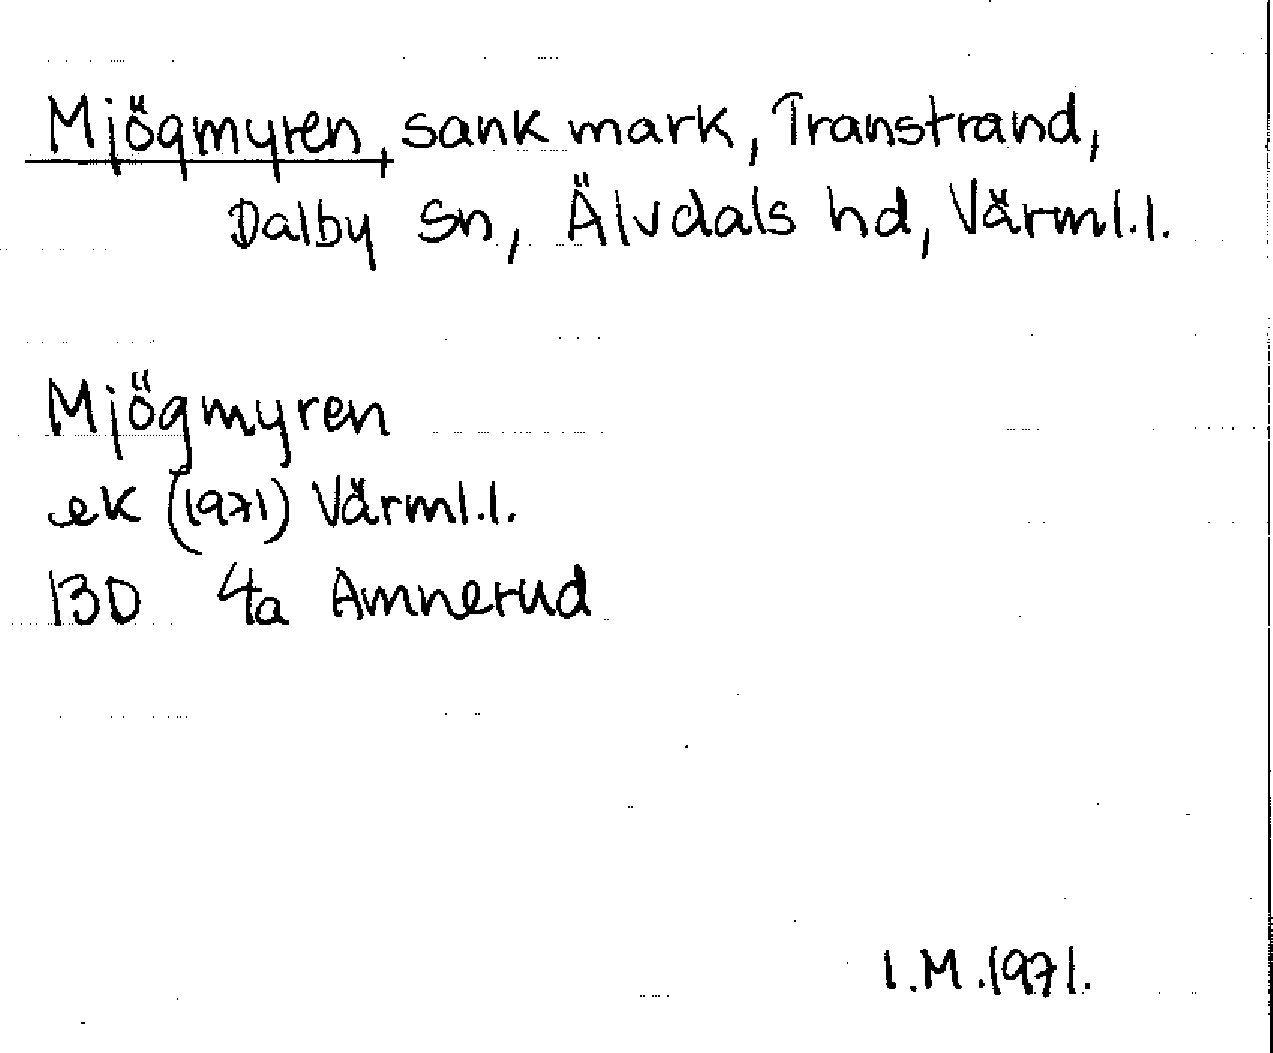 Mjögmyren, sank mark, Transtrand,
Dalby sn, Älvdals hd, Värml.l.
Mjögmyren
ek (1971) Värml.l.
13D 4a Amnerud
I.M.1971.